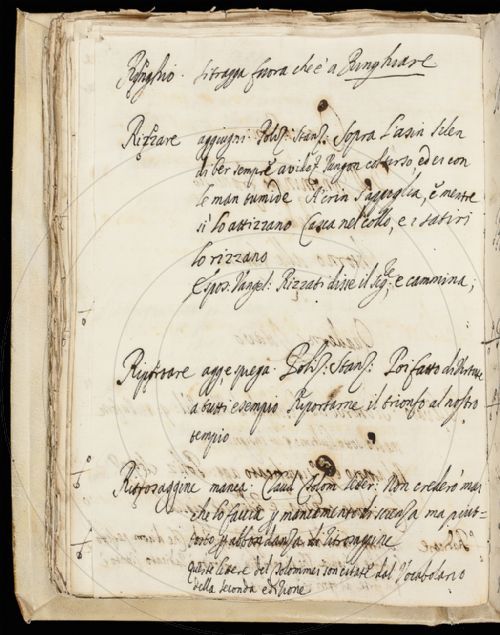 si tragga fuora che è a Ringhiare
Rizzare aggiugni. Poliz: Stanz: Sopra l'asin Silen
di ber sempre avido
le man tumide
si lo attizzano Casca nel collo, e i satiri
lo rizzano
Espos: Vangel: Rizzati disse il Sig:re e cammina;
Riportare agg. e spiega. Poliz: Stanz: Poi fatto di virtute
a tutti esempio Riportarne il trionfo al nostro
tempio
Ritrosaggine manca. Claud. Tolom. letter. Non crederò mai
che lo faccia p mancamento di scienza ma piut=
tosto p abbondanza di Ritrosaggine
queste lettere del Tolommei son citate dal Vocabolario
della seconda edizione